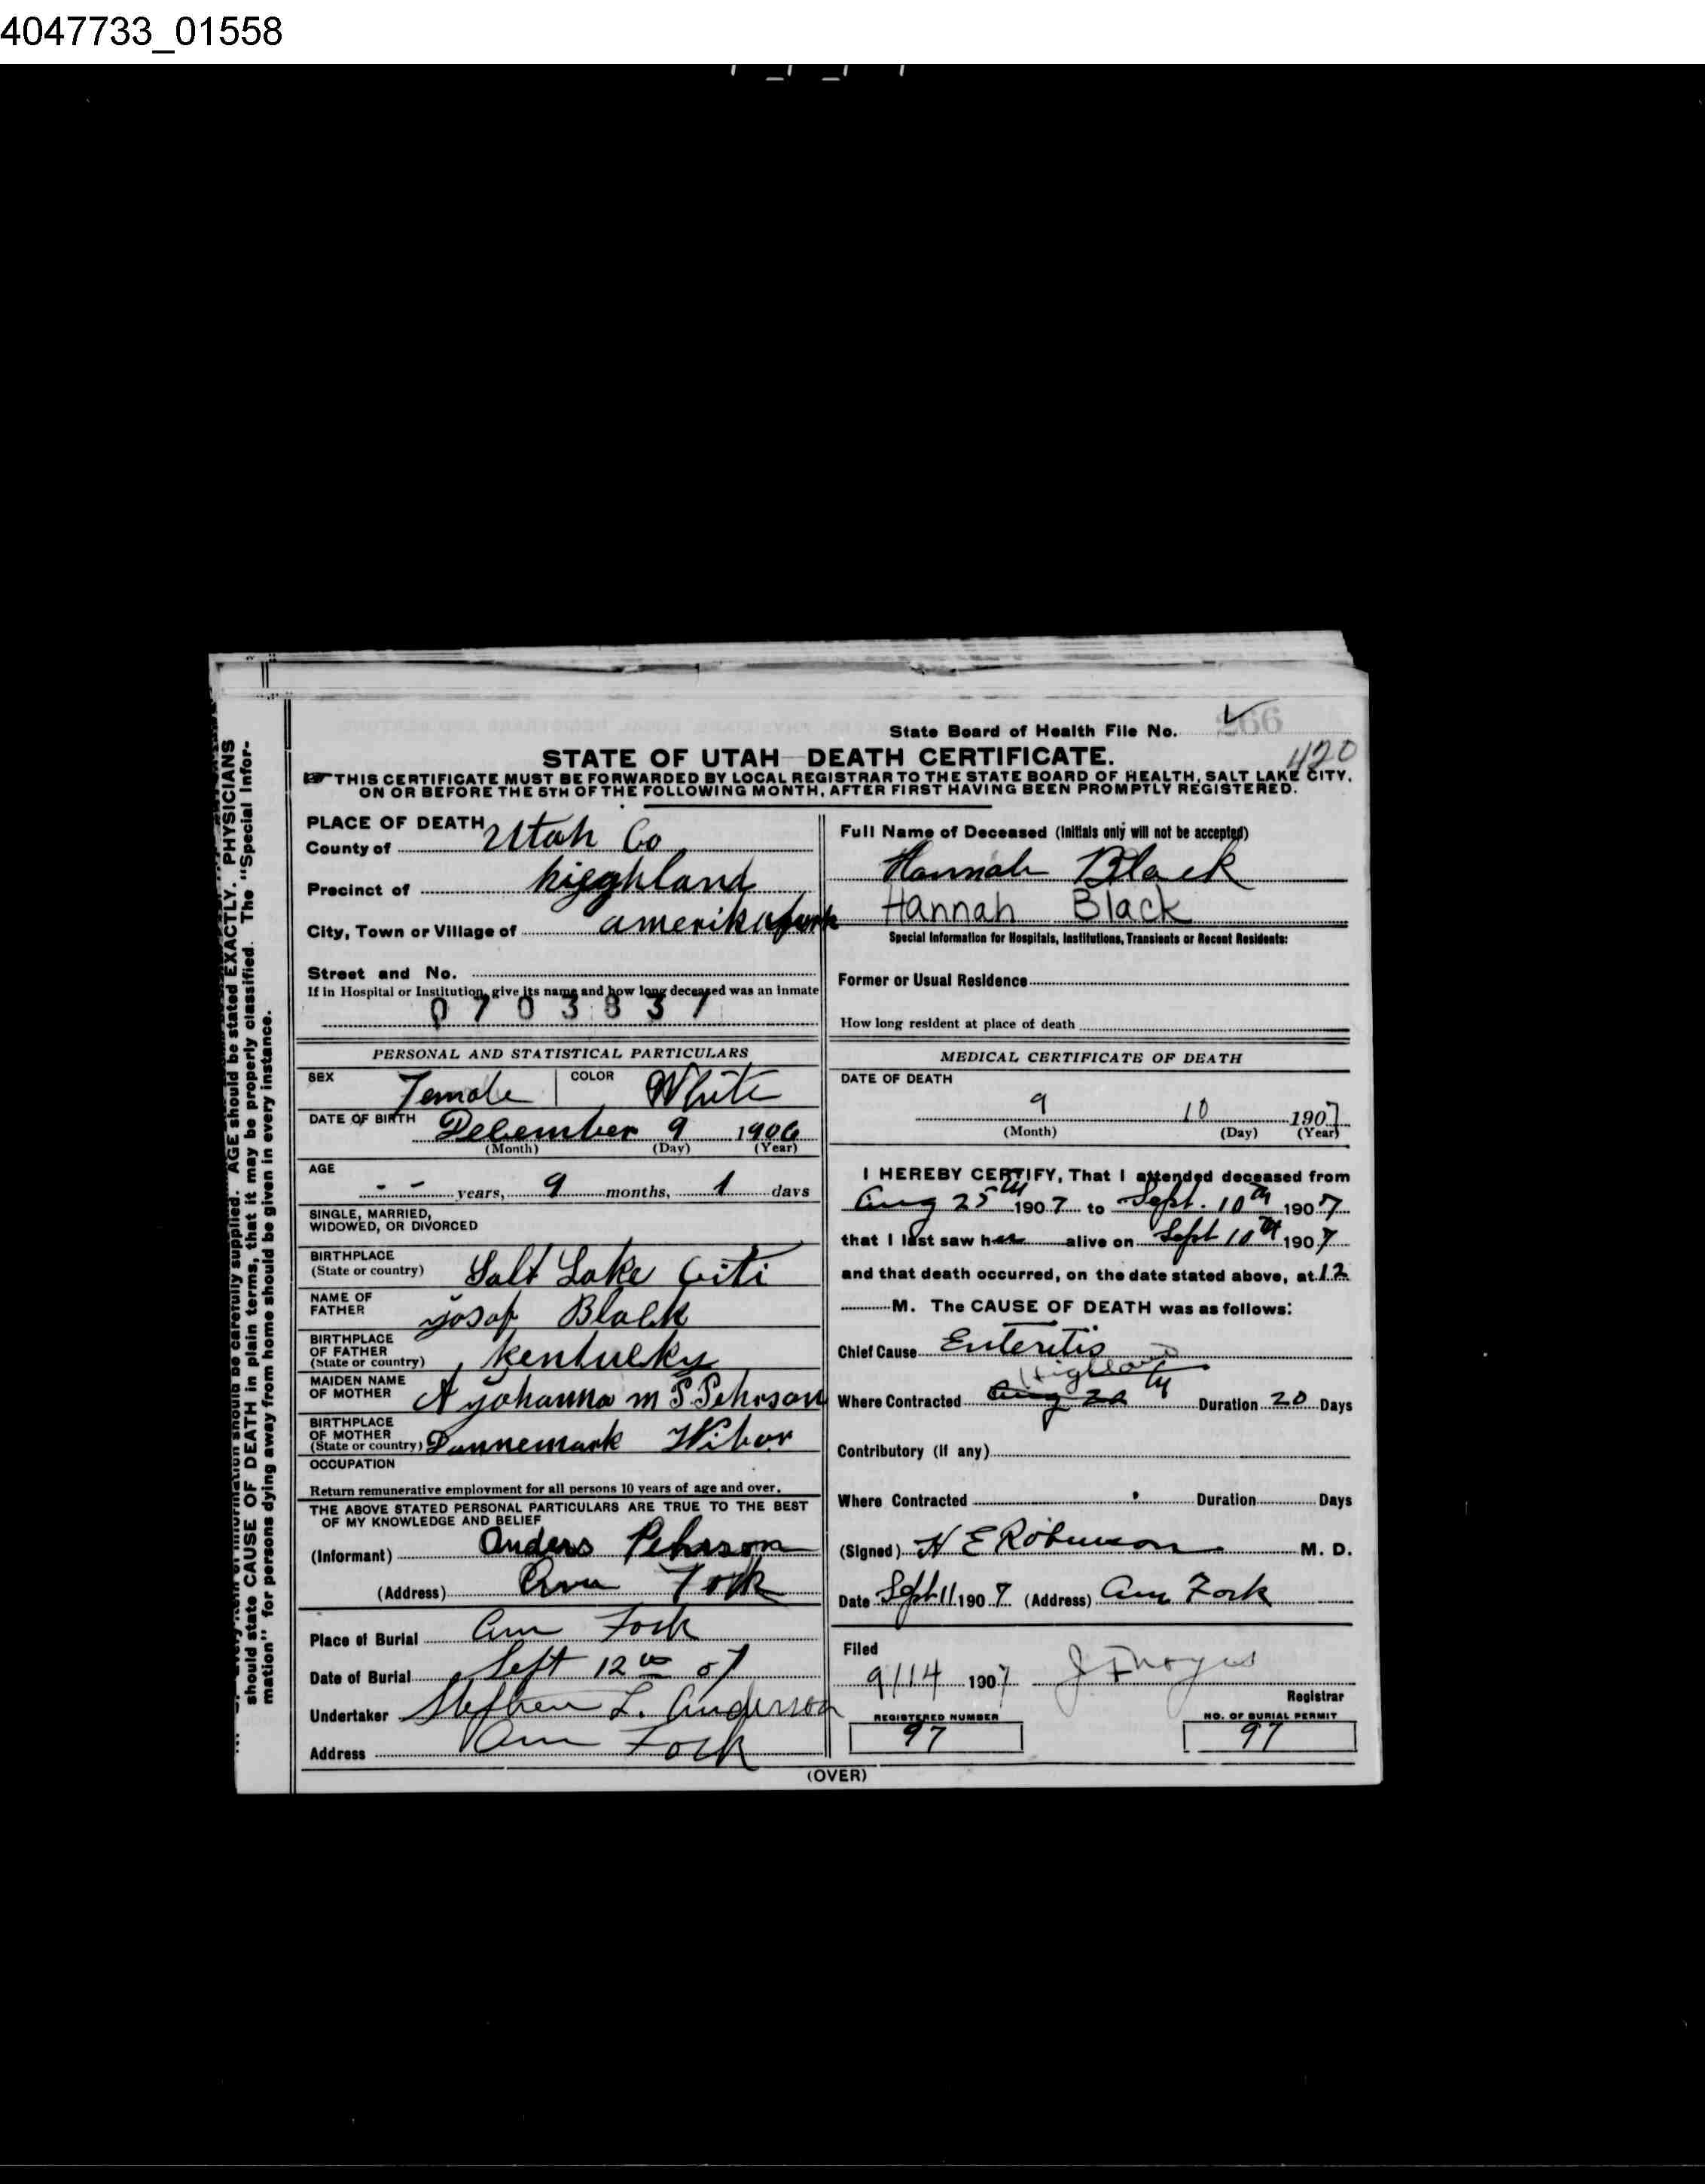 4047733_01558
State Board of Health File No. 266
420
STATE OF UTAH—DEATH CERTIFICATE.
THIS CERTIFICATE MUST BE FORWARDED BY LOCAL REGISTRAR TO THE STATE BOARD OF HEALTH, SALT LAKE CITY,
ON OR BEFORE THE 5TH OF THE FOLLOWING MONTH, AFTER FIRST HAVING BEEN PROMPTLY REGISTERED.
AGE should be stated EXACTLY. PHYSICIANS
should state CAUSE OF DEATH in plain terms, that it may be properly classified. The "Special Infor-
mation" for persons dying away from home should be given in every instance.
PLACE OF DEATH
County of Utah Co
Precinct of higghland
City, Town or Village of amerikafork
Street and No.
If in Hospital or Institution, give its name and how long deceased was an inmate
0703837
PERSONAL AND STATISTICAL PARTICULARS
SEX Female COLOR White
DATE OF BIRTH December 9 1906
(Month) (Day) (Year)
AGE
- - years, 9 months, 1 days
SINGLE, MARRIED,
WIDOWED, OR DIVORCED
BIRTHPLACE
(State or country) Salt Lake Citi
NAME OF
FATHER yosof Black
BIRTHPLACE
OF FATHER
(State or country) kentucky
MAIDEN NAME
OF MOTHER A yohanna m S Pehrson
BIRTHPLACE
OF MOTHER
(State or country) Dannemark
OCCUPATION
Return remunerative employment for all persons 10 years of age and over.
THE ABOVE STATED PERSONAL PARTICULARS ARE TRUE TO THE BEST
OF MY KNOWLEDGE AND BELIEF
(Informant) Anders Pehrson
(Address) Am Fork
Place of Burial Am Fork
Date of Burial Sept 12 07
Undertaker Stephen L. Anderson
Address Am Fork
Full Name of Deceased (Initials only will not be accepted)
Hannah Black
Hannah Black
Special Information for Hospitals, Institutions, Transients or Recent Residents:
Former or Usual Residence
How long resident at place of death
MEDICAL CERTIFICATE OF DEATH
DATE OF DEATH
9 10 1907
(Month) (Day) (Year)
I HEREBY CERTIFY, That I attended deceased from
Aug 25th 1907 to Sept. 10th 1907
that I last saw her alive on Sept 10th 1907
and that death occurred, on the date stated above, at 12
M. The CAUSE OF DEATH was as follows:
Chief Cause Enteritis
Highland
Where Contracted Aug 20 Duration 20 Days
Contributory (If any)
Where Contracted Duration Days
(Signed) H E Robinson M. D.
Date Sept 11 1907 (Address) Am Fork
Filed
9/14 1907 J F Noyes
Registrar
REGISTERED NUMBER
97
NO. OF BURIAL PERMIT
97
(OVER)